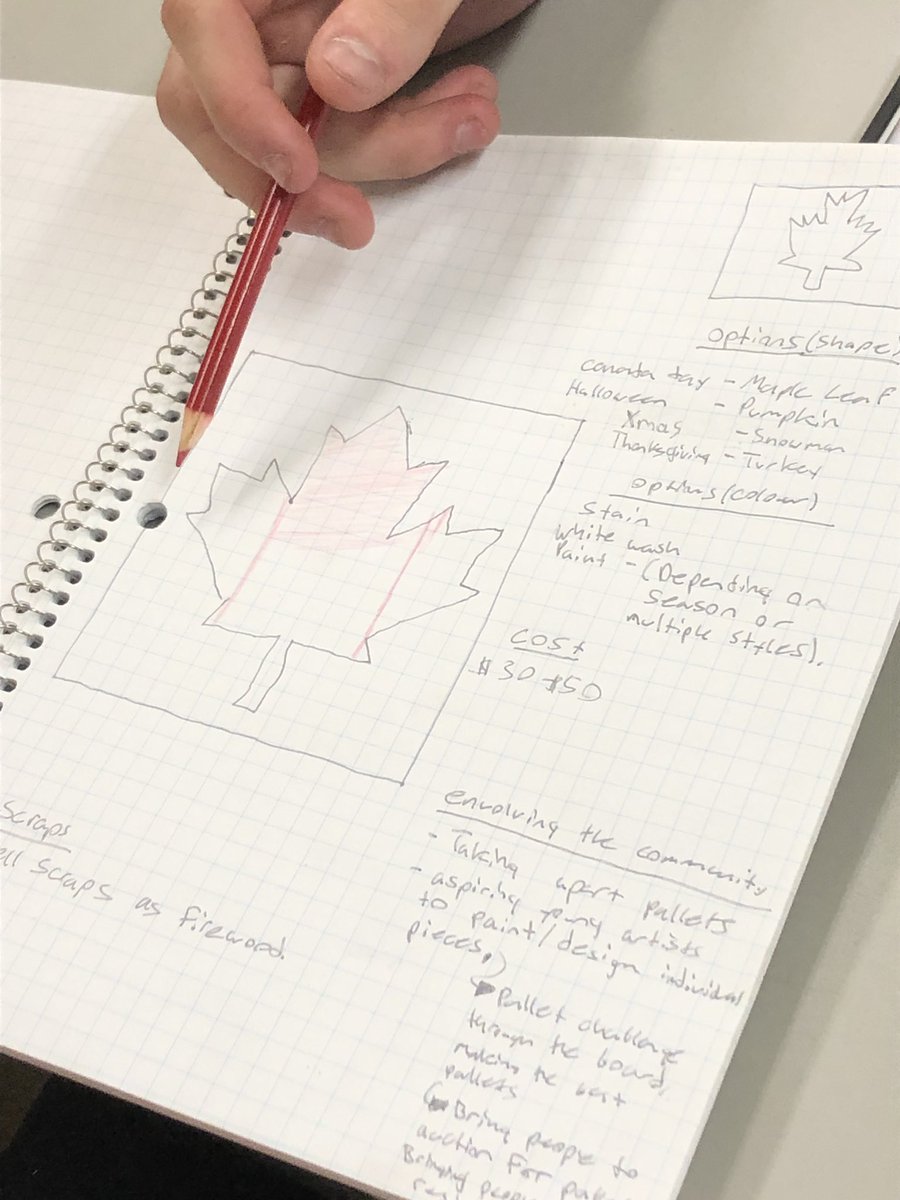 options (shape)
Canada day - Maple Leaf
Halloween - Pumpkin
Xmas - Snowman
Thanksgiving - Turkey
options (colour)
Stain
White wash
Paint - (Depending on
season or
multiple styles).
COST
$30 - $50
Scraps
ell scraps as firewood.
envolving the community
- Taking apart pallets
- aspiring young artists
to paint/design individual
pieces.
Pallet challenge
through the board,
making the best
pallets
Bring people to
auction for
Bringing people